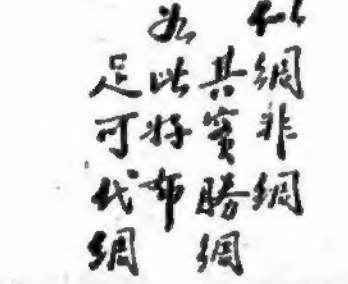 似綢非綢
其實勝綢
如此布
足可代綢